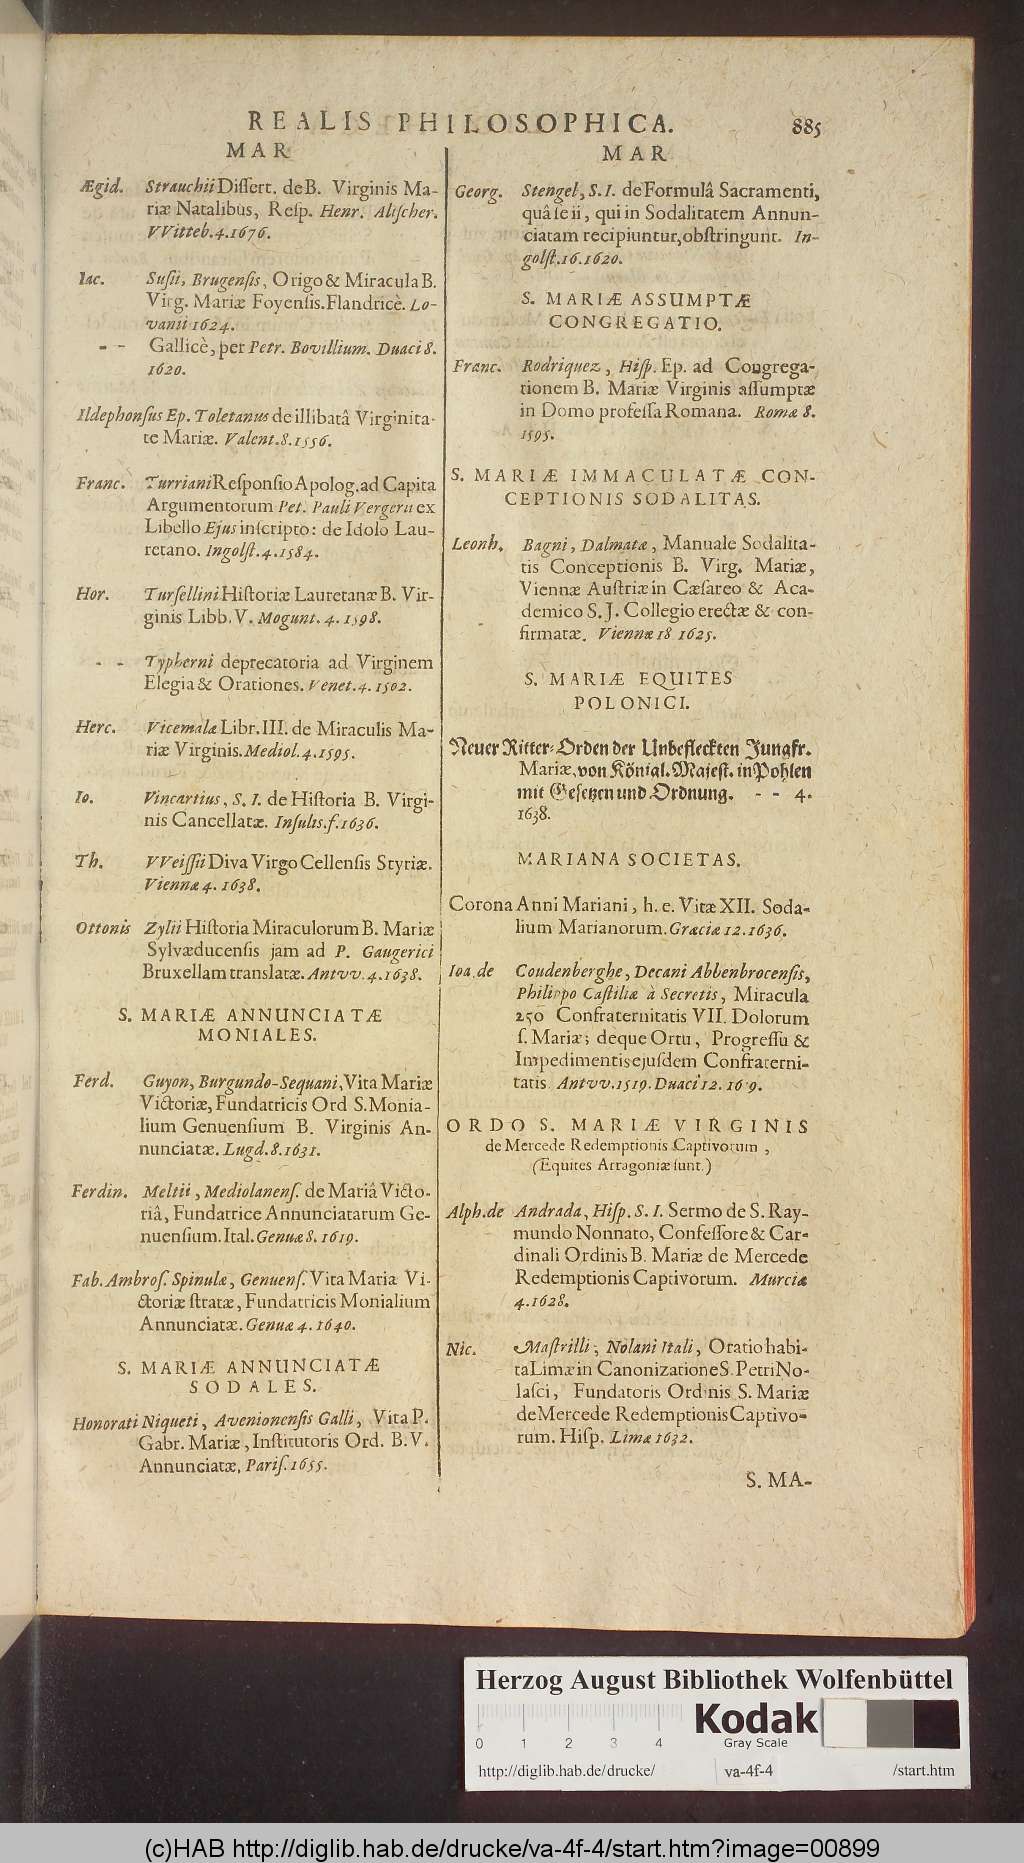 REALIS PHILOSOPHICA. 885
MAR
Ægid. Strauchii Dissert. de B. Virginis Ma-
riæ Natalibus, Resp. Henr. Alischer.
VVitteb. 4. 1676.
Iac. Susii, Brugensis, Origo & Miracula B.
Virg. Mariæ Foyensis. Flandricè. Lo-
vanii 1624.
- - Gallicè, per Petr. Bovillium. Duaci 8.
1620.
Ildephonsus Ep. Toletanus de illibatâ Virginita-
te Mariæ. Valent. 8. 1556.
Franc. Turriani Responsio Apolog. ad Capita
Argumentorum Pet. Pauli Vergerii ex
Libello Ejus inscripto: de Idolo Lau-
retano. Ingolst. 4. 1584.
Hor. Tursellini Historiæ Lauretanæ B. Vir-
ginis Libb. V. Mogunt. 4. 1598.
- - Typherni deprecatoria ad Virginem
Elegia & Orationes. Venet. 4. 1502.
Herc. Vicemalæ Libr. III. de Miraculis Ma-
riæ Virginis. Mediol. 4. 1595.
Io. Vincartius, S. I. de Historia B. Virgi-
nis Cancellatæ. Insulis. f. 1636.
Th. VVeissii Diva Virgo Cellensis Styriæ.
Viennæ 4. 1638.
Ottonis Zylii Historia Miraculorum B. Mariæ
Sylvæducensis jam ad P. Gaugerici
Bruxellam translatæ. Antvv. 4. 1638.
S. MARIÆ ANNUNCIATÆ
MONIALES.
Ferd. Guyon, Burgundo-Sequani, Vita Mariæ
Victoriæ, Fundatricis Ord S. Monia-
lium Genuensium B. Virginis An-
nunciatæ. Lugd. 8. 1631.
Ferdin. Meltii, Mediolanens. de Mariâ Victo-
riâ, Fundatrice Annunciatarum Ge-
nuensium. Ital. Genuæ 8. 1619.
Fab. Ambros. Spinulæ, Genuens. Vita Maria Vi-
ctoriæ stratæ, Fundatricis Monialium
Annunciatæ. Genuæ 4. 1640.
S. MARIÆ ANNUNCIATÆ
SODALES.
Honorati Niqueti, Avenionensis Galli, Vita P.
Gabr. Mariæ, Institutoris Ord. B. V.
Annunciatæ. Paris. 1655.
MAR
Georg. Stengel, S. I. de Formulâ Sacramenti,
quâ se ii, qui in Sodalitatem Annun-
ciatam recipiuntur, obstringunt. In-
golst. 16. 1620.
S. MARIÆ ASSUMPTÆ
CONGREGATIO.
Franc. Rodriquez, Hisp. Ep. ad Congrega-
tionem B. Mariæ Virginis assumptæ
in Domo professa Romana. Romæ 8.
1595.
S. MARIÆ IMMACULATÆ CON-
CEPTIONIS SODALITAS.
Leonh. Bagni, Dalmatæ, Manuale Sodalita-
tis Conceptionis B. Virg. Mariæ,
Viennæ Austriæ in Cæsareo & Aca-
demico S. J. Collegio erectæ & con-
firmatæ. Viennæ 18 1625.
S. MARIÆ EQUITES
POLONICI.
Neuer Ritter-Orden der Unbefleckten Jungfr.
Mariæ, von Königl. Majest. in Pohlen
mit Gesetzen und Ordnung. - - 4.
1638.
MARIANA SOCIETAS.
Corona Anni Mariani, h. e. Vitæ XII. Soda-
lium Marianorum. Græciæ 12. 1636.
Ioa. de Coudenberghe, Decani Abbenbrocensis,
Philippo Castiliæ à Secretis, Miracula
250 Confraternitatis VII. Dolorum
s. Mariæ; deque Ortu, Progressu &
Impedimentis ejusdem Confraterni-
tatis. Antvv. 1519. Duaci 12.
ORDO S. MARIÆ VIRGINIS
de Mercede Redemptionis Captivorum,
(Equites Arragoniæ sunt.)
Alph. de Andrada, Hisp. S. I. Sermo de S. Ray-
mundo Nonnato, Confessore & Car-
dinali Ordinis B. Mariæ de Mercede
Redemptionis Captivorum. Murciæ
4. 1628.
Nic. Mastrilli, Nolani Itali, Oratio habi-
ta Limæ in Canonizatione S. Petri No-
lasci, Fundatoris Ordinis S. Mariæ
de Mercede Redemptionis Captivo-
rum. Hisp. Limæ 1632.
S. MA-
Herzog August Bibliothek Wolfenbüttel
Kodak
Gray Scale
0 1 2 3 4
http://diglib.hab.de/drucke/ va-4f-4 /start.htm
(c)HAB http://diglib.hab.de/drucke/va-4f-4/start.htm?image=00899